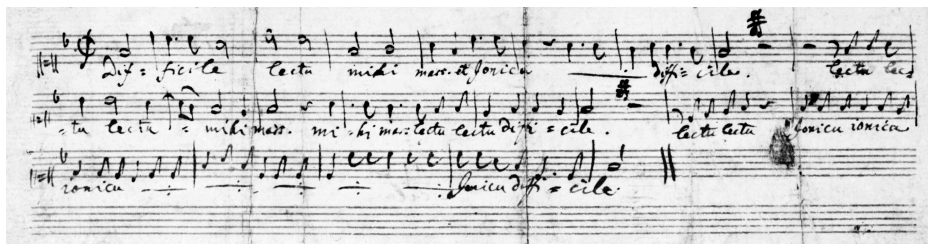 Dif = ficile lectu mihi mars et Jonicu diffi = cile. lectu lec
= tu lectu = mihi mars. mi = hi mars lectu lectu diffi = cile. lectu lectu Jonicu ionicu
ionicu Jonicu diffi = cile.